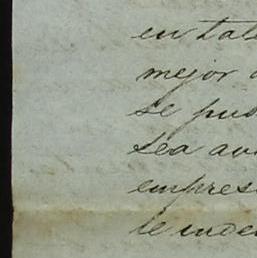 en tale
mejor
se pus
sea au
empres
le inde